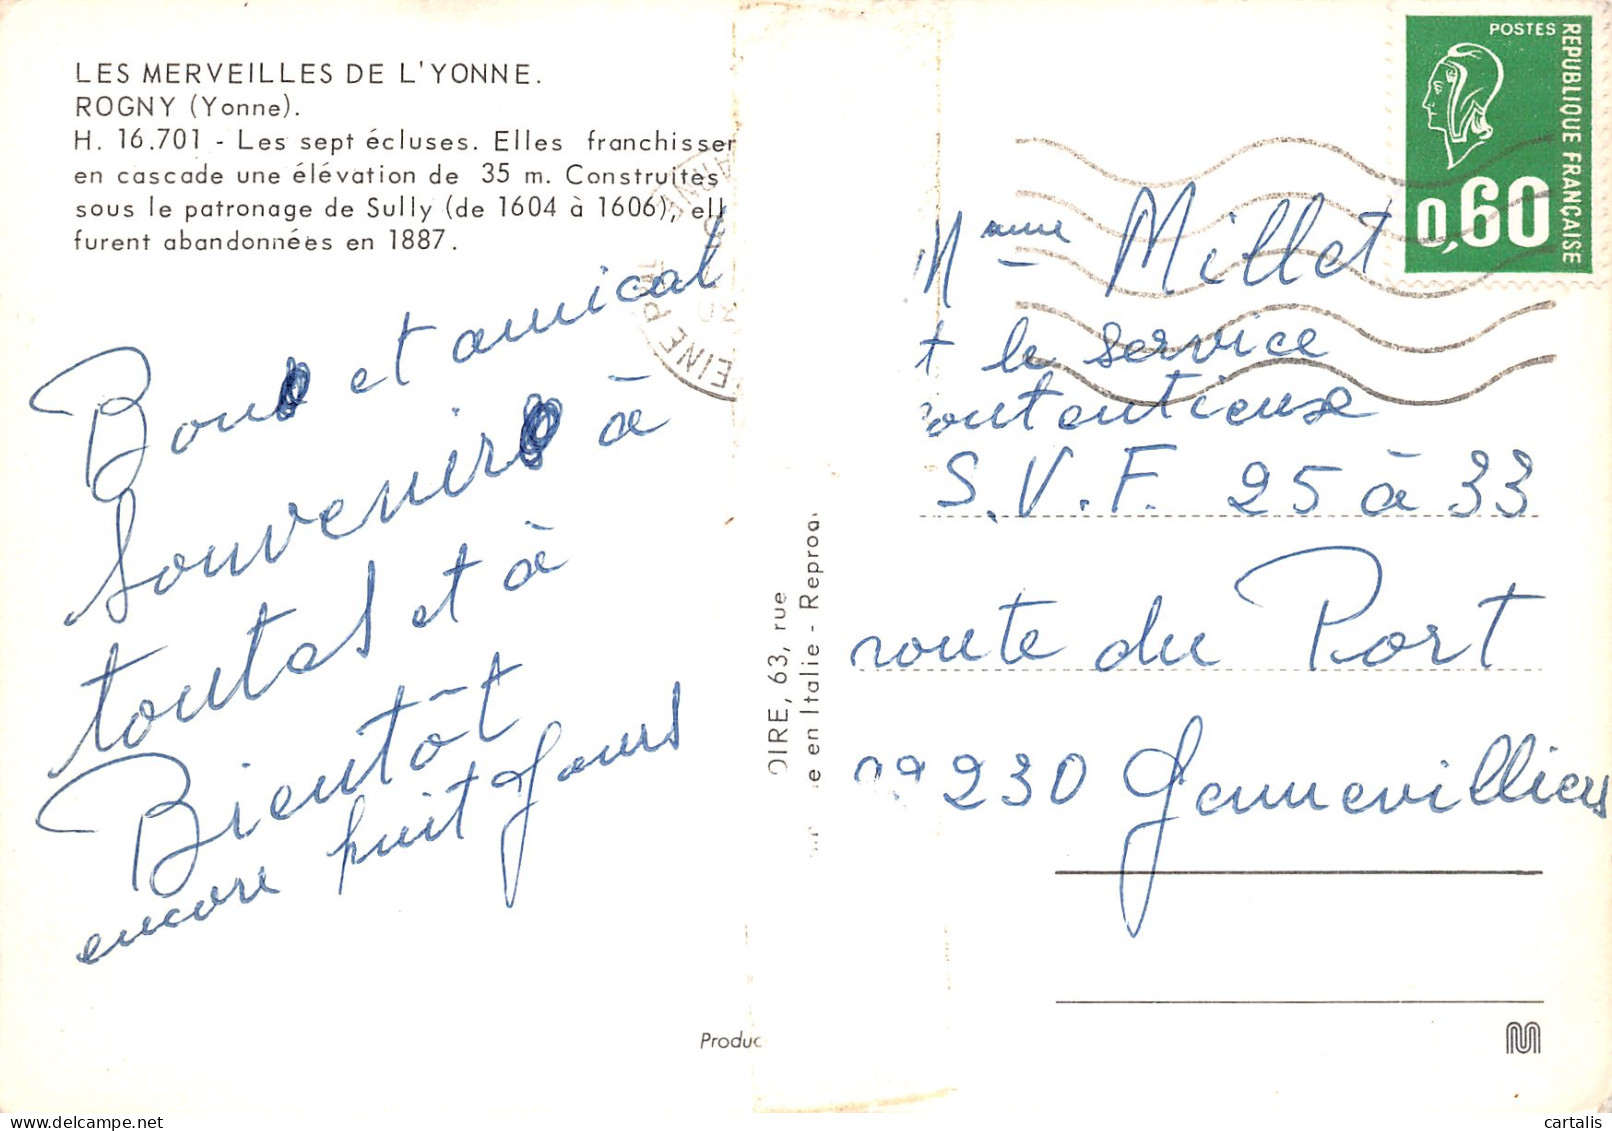 LES MERVEILLES DE L'YONNE.
ROGNY (Yonne).
H. 16.701 - Les sept écluses. Elles franchisser
en cascade une élévation de 35 m. Construites
sous le patronage de Sully (de 1604 à 1606), ell
furent abandonnées en 1887.
Bon et amical
Souvenir à
toutes et à
Bientôt
encore huit jours
Produc
OIRE, 63, rue
e en Italie - Reprod
EINE P
POSTES
REPUBLIQUE FRANÇAISE
0,60
Mme Millet
t le service
contentieuse
S.V.F. 25 à 33
route du Port
92230 Gennevilliers
cartalis
delcampe.net